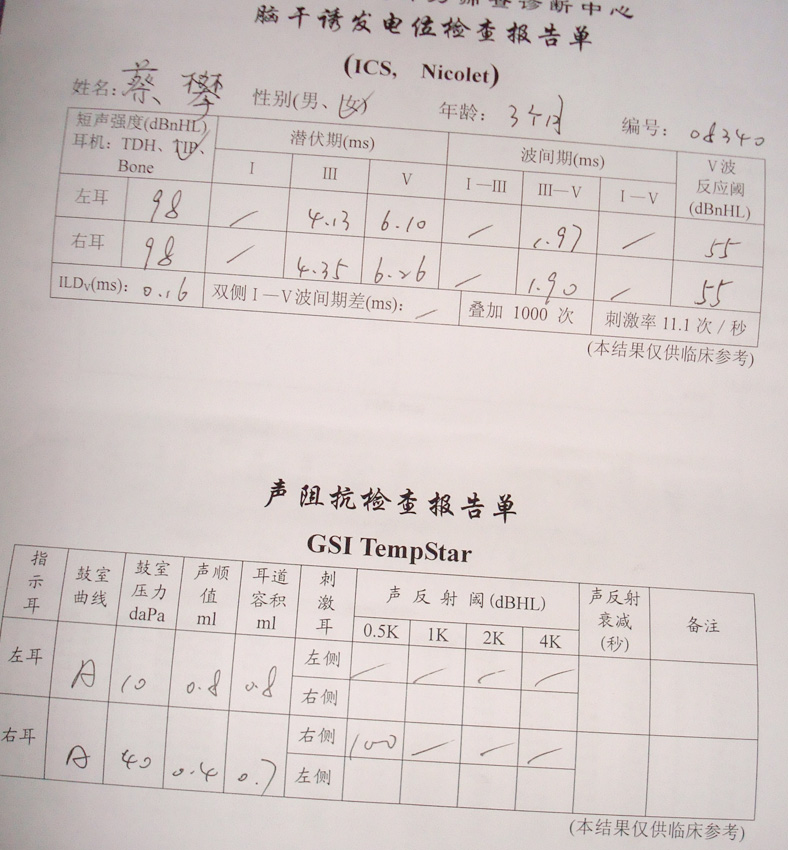 诊断中心
脑干诱发电位检查报告单
(ICS, Nicolet)
姓名: 蔡攀 性别(男、女) 年龄: 3个月 编号: 08340
短声强度(dBnHL) 耳机: TDH、TIP、Bone 潜伏期(ms) 波间期(ms) V波反应阈(dBnHL)
I III V I—III III—V I—V
左耳 98 / 4.13 6.10 / 1.97 / 55
右耳 98 / 4.35 6.26 / 1.90 / 55
ILDV(ms): 0.16 双侧I—V波间期差(ms): / 叠加 1000 次 刺激率11.1次/秒
(本结果仅供临床参考)
声阻抗检查报告单
GSI TempStar
指示耳 鼓室曲线 鼓室压力daPa 声顺值ml 耳道容积ml 刺激耳 声反射阈(dBHL) 声反射衰减(秒) 备注
0.5K 1K 2K 4K
左耳 A 10 0.8 0.8 左侧 / / / /
右侧
右耳 A 40 0.4 0.7 右侧 100 / / /
左侧
(本结果仅供临床参考)